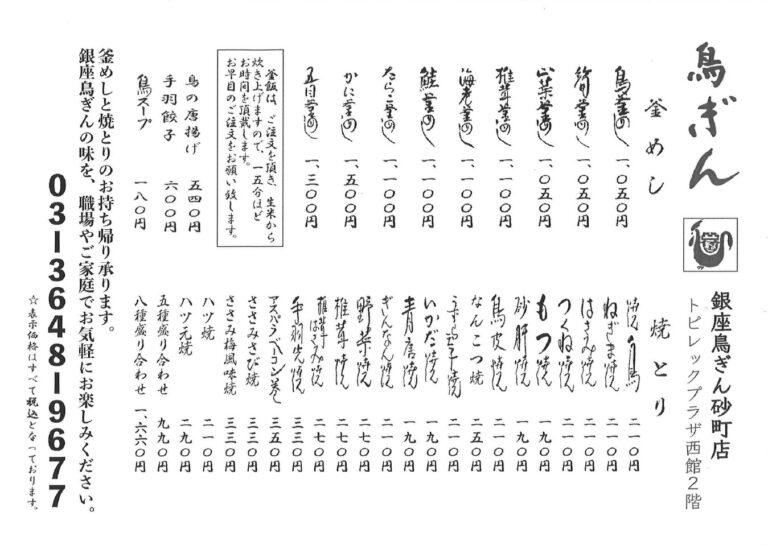 鳥ぎん
銀座鳥ぎん砂町店
トピレックプラザ西館2階
釜めし
鳥釜めし 一、〇五〇円
筍釜めし 一、〇五〇円
山菜釜めし 一、〇五〇円
椎茸釜めし 一、一〇〇円
海老釜めし 一、一〇〇円
鮭釜めし 一、一〇〇円
たらこ釜めし 一、一〇〇円
かに釜めし 一、五〇〇円
五目釜めし 一、三〇〇円
釜飯は、ご注文を頂き、生米から
炊き上げますので、一五分ほど
お時間を頂戴します。
お早目のご注文をお願い致します。
鳥の唐揚げ 五四〇円
手羽餃子 六〇〇円
鳥スープ 一八〇円
焼とり
焼鳥 二一〇円
ねぎま焼 二一〇円
はさみ焼 二一〇円
つくね焼 二一〇円
もつ焼 一九〇円
砂肝焼 一九〇円
鳥皮焼 二一〇円
なんこつ焼 二五〇円
うずら玉子焼 二一〇円
いかだ焼 一九〇円
青唐焼 一九〇円
ぎんなん焼 二一〇円
野菜焼 二七〇円
椎茸焼 二一〇円
椎茸はさみ焼 二七〇円
手羽先焼 三三〇円
アスパラベーコン巻 三五〇円
ささみさび焼 三三〇円
ささみ梅風味焼 三三〇円
ハツ焼 二一〇円
ハツ元焼 二九〇円
五種盛り合わせ 九九〇円
八種盛り合わせ 一、六六〇円
釜めしと焼とりのお持ち帰り承ります。
銀座鳥ぎんの味を、職場やご家庭でお気軽にお楽しみください。
03-3648-9677
☆表示価格はすべて税込となっております。